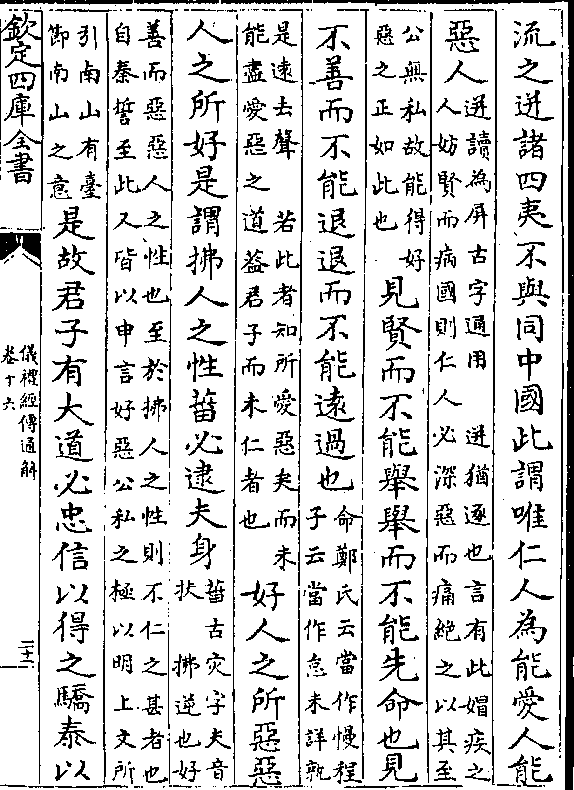 流之迸諸四夷不與同中國此謂唯仁人為能愛人能
惡人迸讀為屏古字通用　迸猶逐也言有此媢疾之
人妨賢而病國則仁人必深惡而痛絶之以其至
公無私故能得好
惡之正如此也
見賢而不能舉舉而不能先命也見
不善而不能退退而不能遠過也命鄭氏云當作慢程
子云當作怠未詳孰
是遠去聲　若此者知所愛惡矣而未
能盡愛惡之道葢君子而未仁者也
好人之所惡惡
人之所好是謂拂人之性菑必逮夫身菑古灾字夫音
扶　拂逆也好
善而惡惡人之性也至於拂人之性則不仁之甚者也
自秦誓至此又皆以申言好惡公私之極以明上文所
引南山有臺
節南山之意
是故君子有大道必忠信以得之驕泰以
欽定四庫全書
儀禮經傳通解
卷十六
二十一